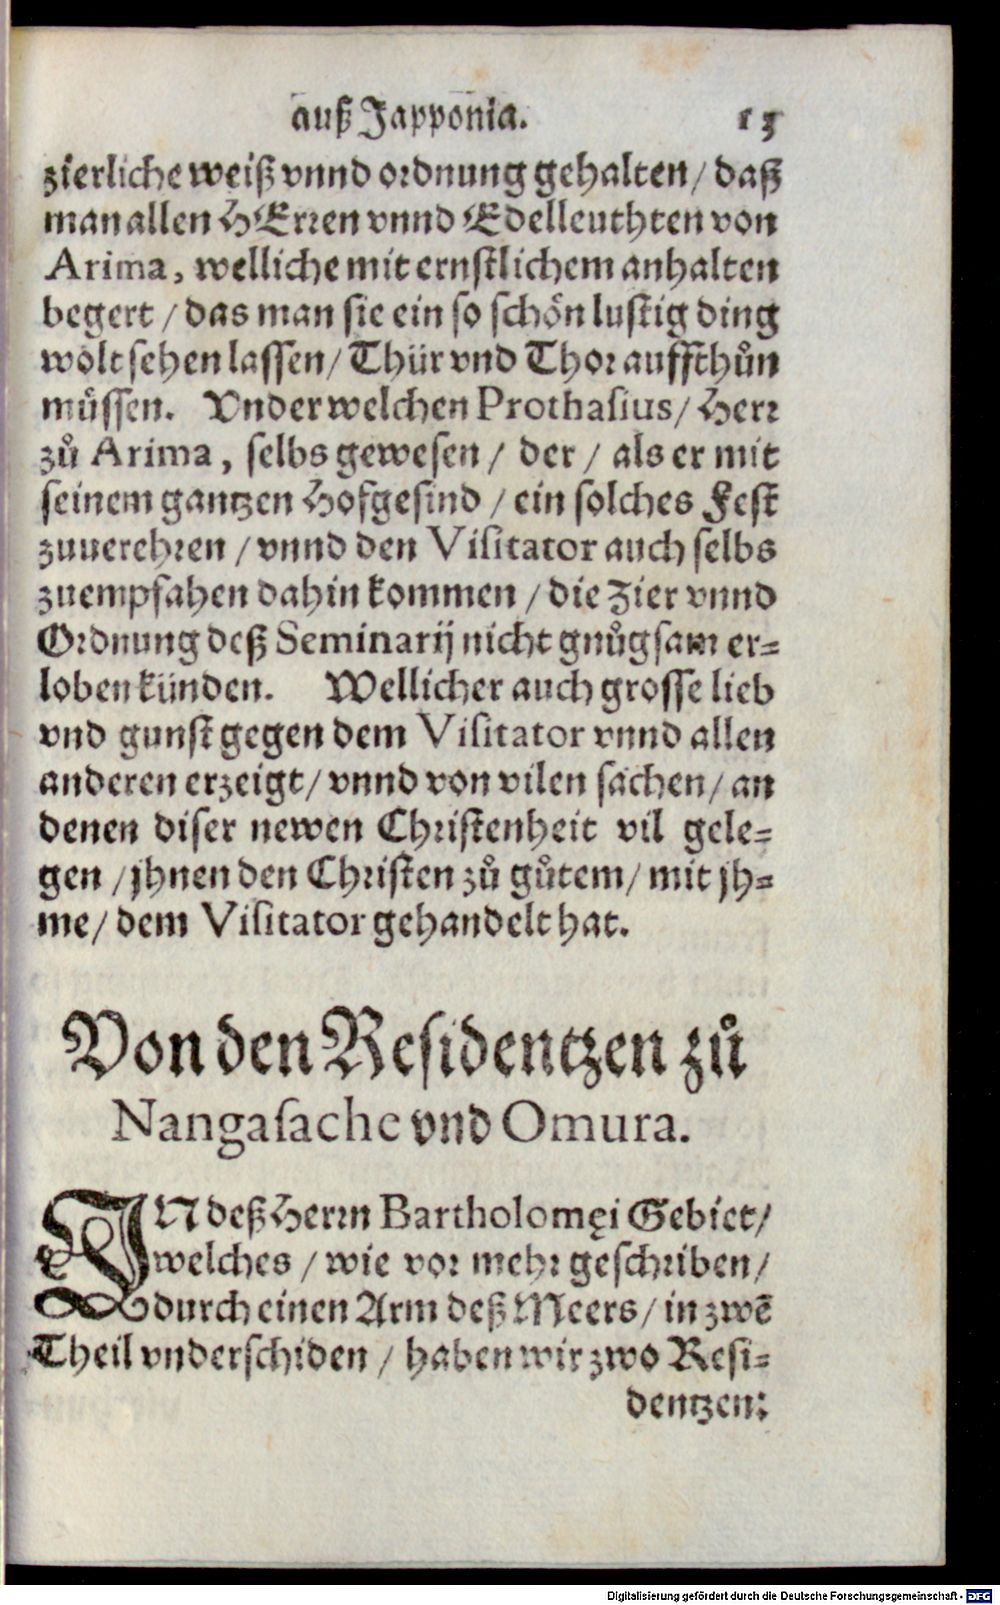 auß Japponia. 13
zierliche weiß vnnd ordnung gehalten/ daß
man allen HErren vnnd Edelleuthten von
Arima, welliche mit ernstlichem anhalten
begert / das man sie ein so schön lustig ding
wölt sehen lassen/ Thür vnd Thor auffthůn
můssen. Vnder welchen Prothasius/ Herr
zů Arima, selbs gewesen / der / als er mit
seinem gantzen Hofgesind / ein solches Fest
zuuerehren / vnnd den Visitator auch selbs
zuempfahen dahin kommen / die Zier vnnd
Ordnung deß Seminarij nicht gnůgsam er-
loben künden. Wellicher auch grosse lieb
vnd gunst gegen dem Visitator vnnd allen
anderen erzeigt/ vnnd von vilen sachen/ an
denen diser newen Christenheit vil gele-
gen / jhnen den Christen zů gůtem/ mit jh-
me/ dem Visitator gehandelt hat.
Von den Residentzen zů
Nangasache vnd Omura.
IN deß Herrn Bartholomęi Gebiet/
welches / wie vor mehr geschriben /
durch einen Arm deß Meers/ in zwē
Theil vnderschiden / haben wir zwo Resi-
dentzen:
Digitalisierung gefördert durch die Deutsche Forschungsgemeinschaft - DFG